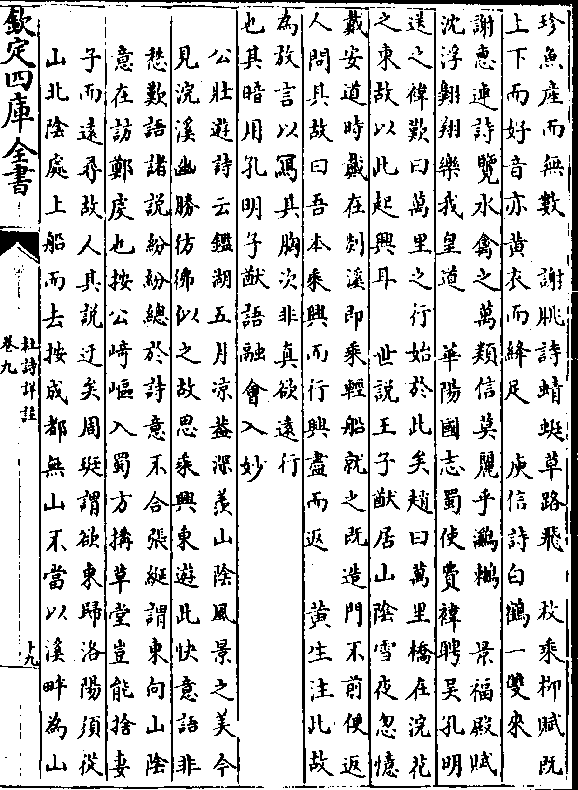 珍魚産而無數　謝朓詩蜻蜓草路飛　枚乗柳賦既
上下而好音亦黄衣而絳足　庾信詩白鶴一雙來
謝惠連詩覽水禽之萬類信莫麗乎鸂鶒　景福殿賦
沈浮翺翔樂我皇道　華陽國志蜀使費禕聘吳孔明
送之禕歎曰萬里之行始於此矣趙曰萬里橋在浣花
之東故以此起興耳　世說王子猷居山陰雪夜忽憶
戴安道時戴在剡溪即乗輕船就之既造門不前便返
人問其故曰吾本乗興而行興盡而返　黄生注此故
為放言以寫其胸次非真欲遠行
也其暗用孔明子猷語融會入妙
公壯遊詩云鑑湖五月凉葢深羨山陰風景之美今
見浣溪幽勝彷彿似之故思乗興東遊此快意語非
愁歎語諸說紛紛總於詩意不合張綖謂東向山陰
意在訪鄭虔也按公崎嶇入蜀方搆草堂豈能捨妻
子而遠尋故人其說迂矣周珽謂欲東歸洛陽須從
山北陰處上船而去按成都無山不當以溪畔為山
欽定四庫全書
杜詩詳註
卷九
十九